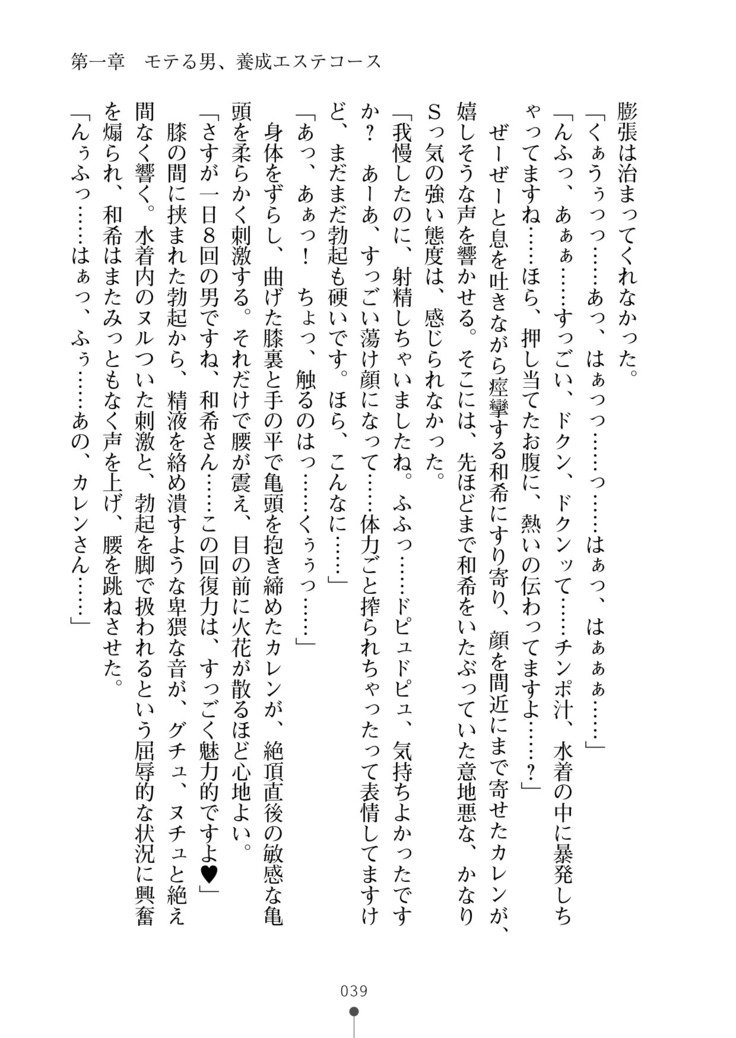 第一章　モテる男、養成エステコース
膨張は治まってくれなかった。
「くぁうぅっっ……あっ、はぁっっ……っ……はぁっ、はぁぁぁ……」
「んふっ、あぁぁ……すっごい、ドクン、ドクンッて……チンポ汁、水着の中に暴発しち
ゃってますね……ほら、押し当てたお腹に、熱いの伝わってますよ……？」
ぜーぜーと息を吐きながら痙攣する和希にすり寄り、顔を間近にまで寄せたカレンが、
嬉しそうな声を響かせる。そこには、先ほどまで和希をいたぶっていた意地悪な、かなり
Ｓっ気の強い態度は、感じられなかった。
「我慢したのに、射精しちゃいましたね。ふふっ……ドピュドピュ、気持ちよかったです
か？　あーあ、すっごい蕩け顔になって……体力ごと搾られちゃったって表情してますけ
ど、まだまだ勃起も硬いです。ほら、こんなに……」
「あっ、あぁっ！　ちょっ、触るのはっ……くぅぅっ……」
身体をずらし、曲げた膝裏と手の平で亀頭を抱き締めたカレンが、絶頂直後の敏感な亀
頭を柔らかく刺激する。それだけで腰が震え、目の前に火花が散るほど心地よい。
「さすが一日８回の男ですね、和希さん……この回復力は、すっごく魅力的ですよ♥」
膝の間に挟まれた勃起から、精液を絡め潰すような卑猥な音が、グチュ、ヌチュと絶え
間なく響く。水着内のヌルついた刺激と、勃起を脚で扱われるという屈辱的な状況に興奮
を煽られ、和希はまたみっともなく声を上げ、腰を跳ねさせた。
「んぅふっ……はぁっ、ふぅ……あの、カレンさん……」
039